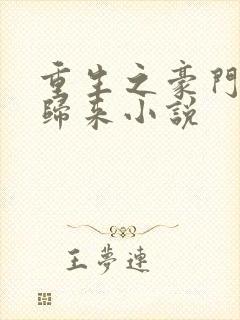 重生之豪門
歸来小說
王夢連